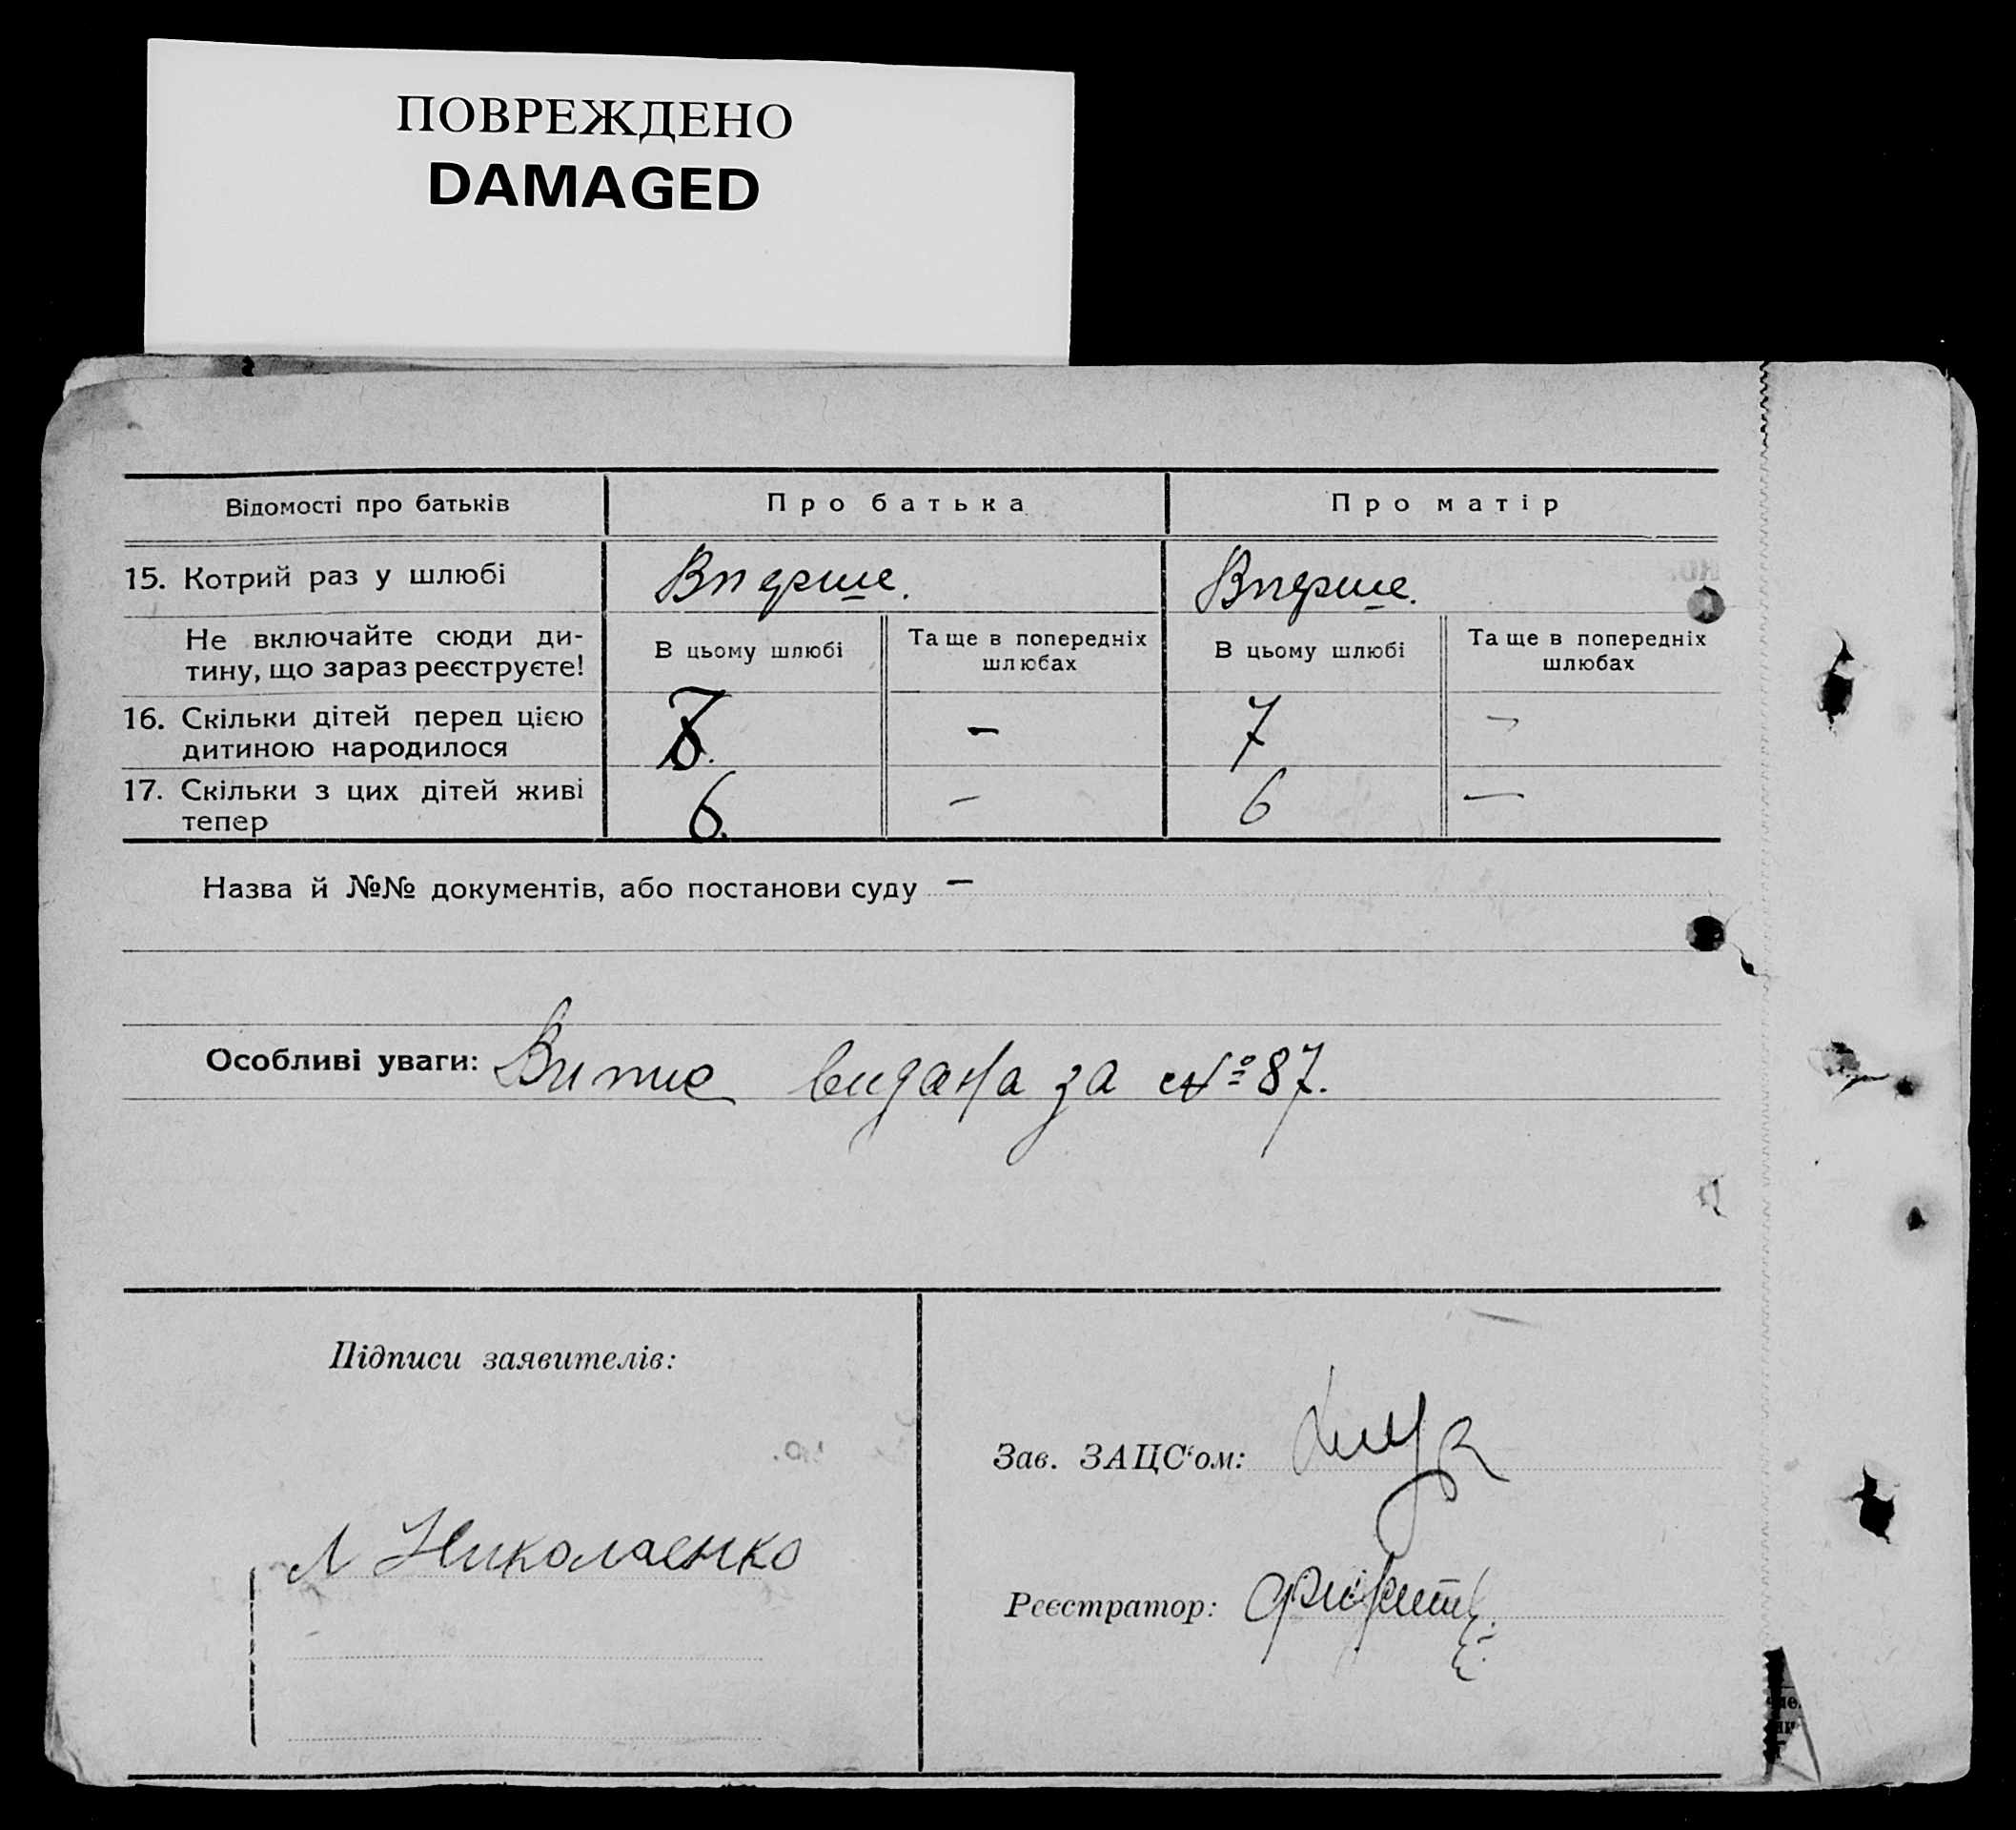 ПОВРЕЖДЕНО
DAMAGED
Відомості про батьків
Про батька
Про матір
15. Котрий раз у шлюбі
Вперше.
Вперше.
Не включайте сюди ди-
тину, що зараз реєструєте!
В цьому шлюбі
Та ще в попередніх
шлюбах
В цьому шлюбі
Та ще в попередніх
шлюбах
16. Скільки дітей перед цією
дитиною народилося
7
–
7
–
17. Скільки з цих дітей живі
тепер
6.
–
6
–
Назва й №№ документів, або постанови суду –
Особливі уваги: Випис видана за № 87.
Підписи заявителів:
Зав. ЗАЦС‘ом:
Л Николаенко
Реєстратор: